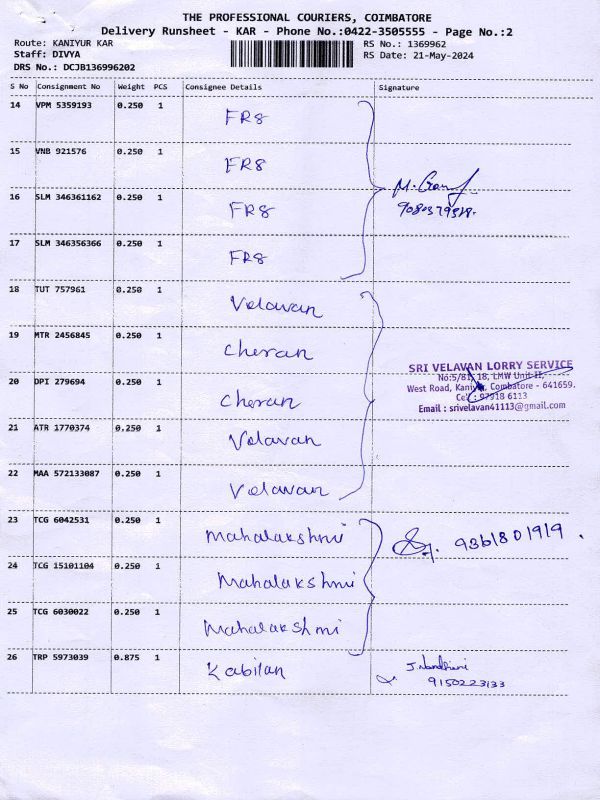 THE PROFESSIONAL COURIERS, COIMBATORE
Delivery Runsheet - KAR - Phone No.:0422-3505555 - Page No.:2
Route: KANIYUR KAR RS No.: 1369962
Staff: DIVYA RS Date: 21-May-2024
DRS No.: DCJB136996202
S No Consignment No Weight PCS Consignee Details Signature
14 VPM 5359193 0.250 1 FR8
15 VNB 921576 0.250 1 FR8
16 SLM 346361162 0.250 1 FR8
17 SLM 346356366 0.250 1 FR8
18 TUT 757961 0.250 1 Velavan
19 MTR 2456845 0.250 1 Cheran
20 DPI 279694 0.250 1 Cheran
SRI VELAVAN LORRY SERVICE
No:5/81, 18, LMW Unit II,
West Road, Coimbatore - 641659.
Cell : 97918 6113
Email : srivelavan41113@gmail.com
21 ATR 1770374 0.250 1 Velavan
22 MAA 572133087 0.250 1 Velavan
23 TCG 6042531 0.250 1 Mahalakshmi 9361801919.
24 TCG 15101104 0.250 1 Mahalakshmi
25 TCG 6030022 0.250 1 Mahalakshmi
26 TRP 5973039 0.875 1 Kabilan J. Nandhini
9150223133